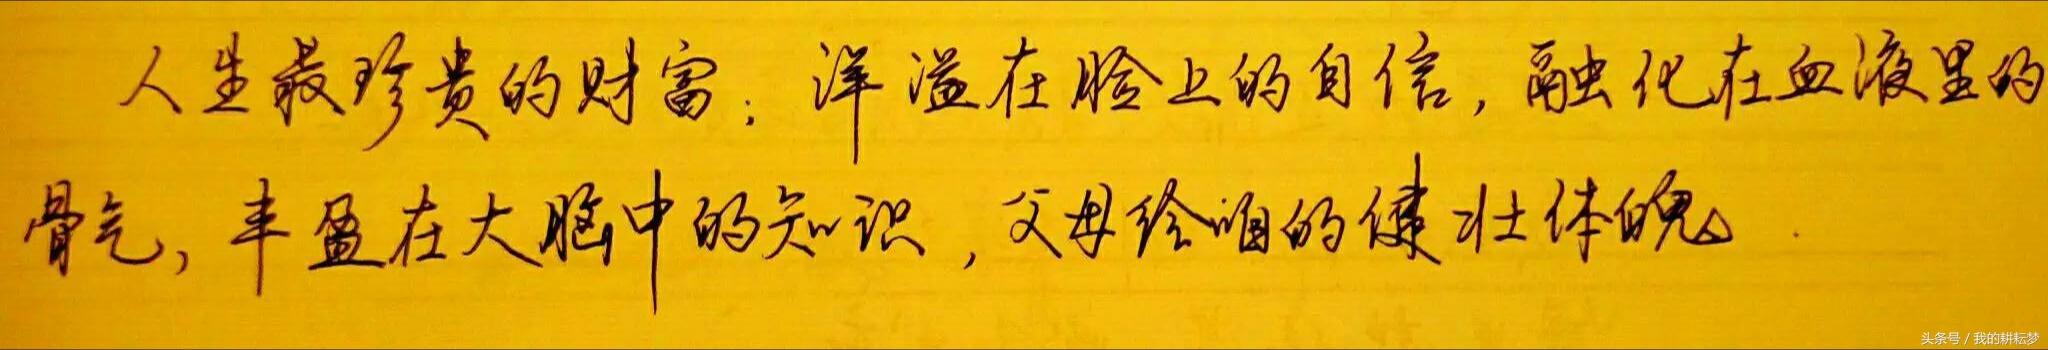 人生最珍贵的财富：洋溢在脸上的自信，融化在血液里的
骨气，丰盈在大脑中的知识，父母给咱的健壮体魄.
头条号 / 我的耕耘梦